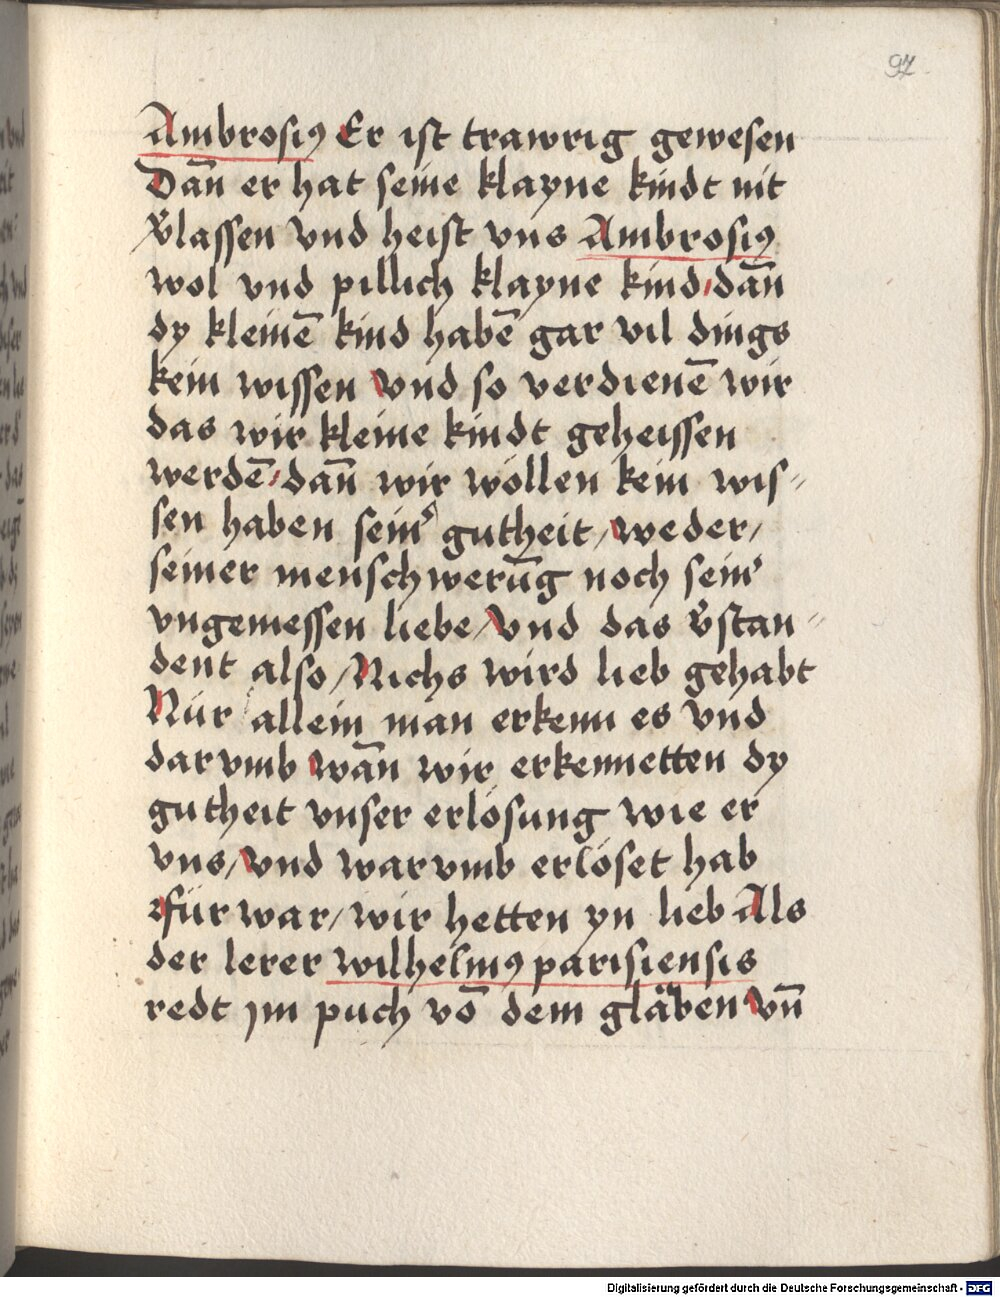 97
Ambrosiꝯ Er ist trawrig gewesen
Dan̄ er hat seine klayne kindt nit
v̓lassen vnd heist vns Ambrosiꝯ
wol vnd pillich klayne kind / dan̄
dy kleinē kind habē gar vil dings
kein wissen vnd so verdienē wir
das wir kleine kindt geheissen
werdē / dan̄ wir wöllen kein wis=
sen haben seinˢ gutheit / weder /
seiner menschwerūg noch sein᾽
vngemessen liebe / vnd das v̓stan=
dent also / Nichs wird lieb gehabt
Nür allein man erkenn es vnd
darvmb wan̄ wir erkennetten dy
gutheit vnser erlösung wie er
vns / vnd warvmb erlöset hab
für war / wir hetten yn lieb Als
der lerer wilhelmꝯ parisiensis
redt jm puch vō dem gläben vn̄
Digitalisierung gefördert durch die Deutsche Forschungsgemeinschaft - DFG